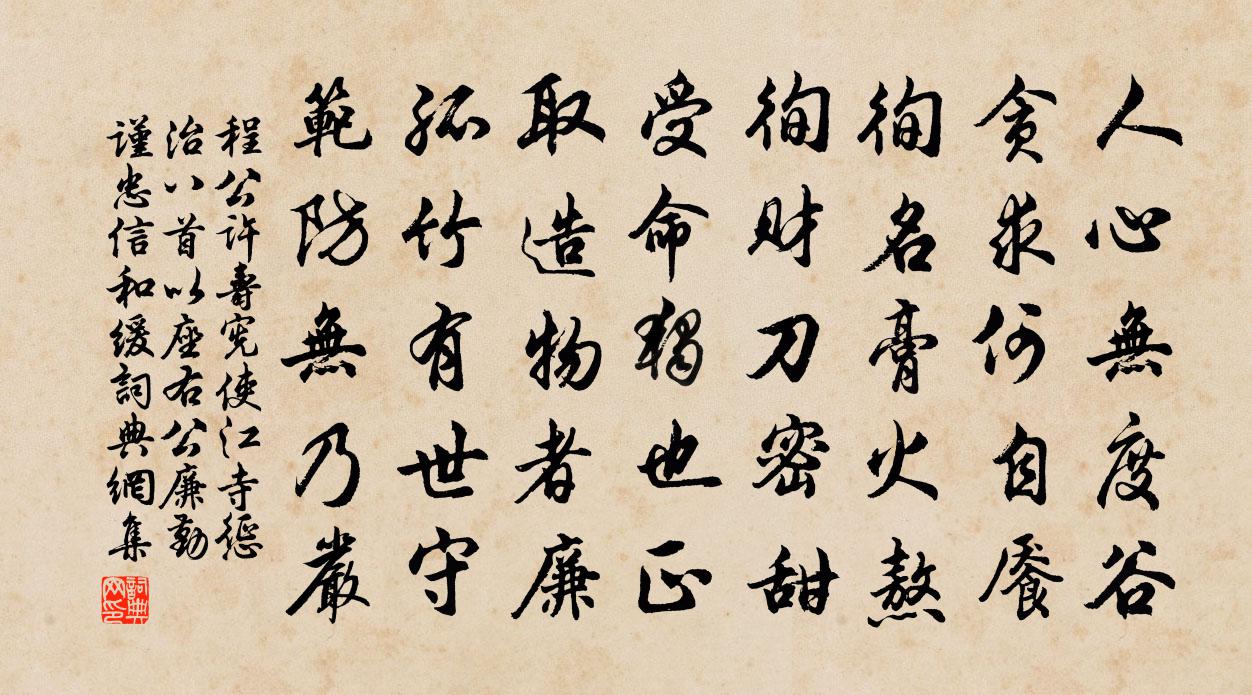 人心無度谷
貪求何自饜
徇名膏火熬
徇財刀密甜
受命獨也正
取造物者廉
孤竹有世守
範防無乃嚴
程公許壽宪使江寺惩
治八首以座右公廉勤
謹忠信和緩詞典網集
詞典网印